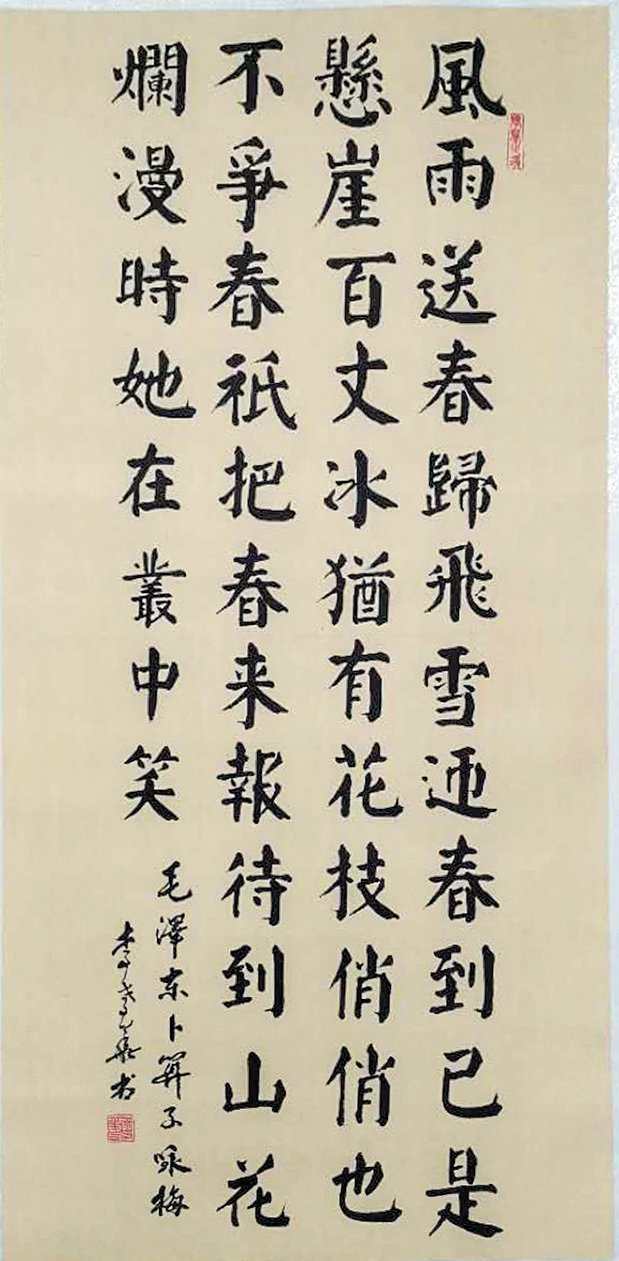 風雨送春歸飛雪迎春到已是
懸崖百丈冰猶有花枝俏俏也
不爭春祗把春来報待到山花
爛漫時她在叢中笑
毛澤东卜筭子咏梅
李華书